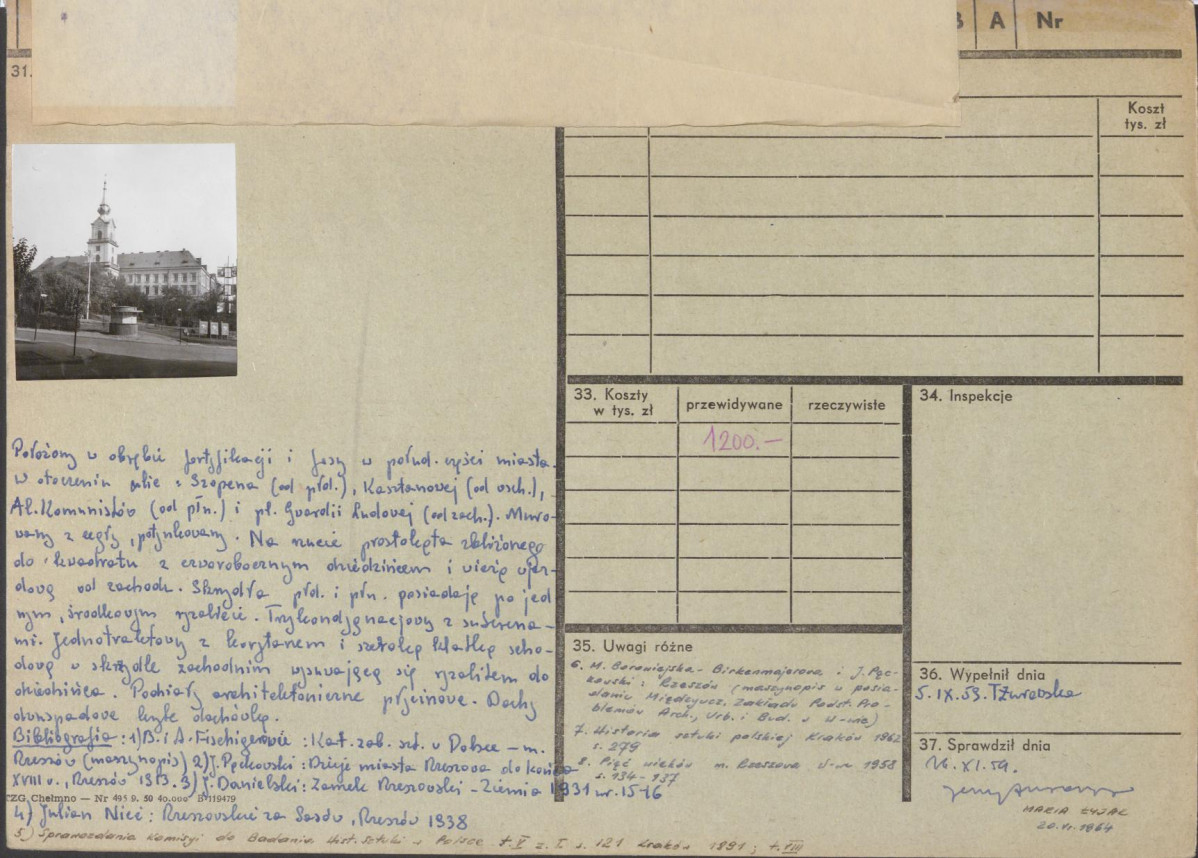 B A Nr
31.
Koszt
tys. zł
33. Koszty
w tys. zł
przewidywane
rzeczywiste
1200.–
34. Inspekcje
Położony w obrębie fortyfikacji i fosy w połud. części miasta.
w otoczeniu ulic : Szopena (od płd.), Kasztanowej (od wsch.),
Al. Komunistów (od płn.) i pl. Gwardii Ludowej (od zach.). Muro-
wany z cegły, potynkowany. Na rzucie prostokąta zbliżonego
do kwadratu z czworobocznym dziedzińcem i wieżą wjaz-
dową od zachodu. Skrzydła płd. i płn. posiadają po jed
nym, środkowym ryzalicie. Trzykondygnacjowy z suterena-
mi. Jednotraktowy z korytarzem i szeroką klatką scho-
dową w skrzydle zachodnim wysuwającą się ryzalitem do
dziedzińca. Podziały architektoniczne przyziemne. Dachy
dwuspadowe kryte dachówką.
Bibliografia : 1) B. i A. : Kat. zab. szt. w Polsce – m.
Rzeszów (maszynopis) 2) J. Pęckowski : Dzieje miasta Rzeszowa do końca
XVIII w., Rzeszów 1913. 3) J. Danielski : Zamek Rzeszowski – Ziemia 1931 nr. 15-16
TZG Chełmno — Nr 495 9. 50 40.000 B-119479
4) Julian Nieć : Rzeszowskie za Sasów, Rzeszów 1938
5) Sprawozdania Komisyi do Badania Hist. Sztuki w Polsce t. V z. I s. 121 Kraków 1891 ; t. VIII
35. Uwagi różne
6. M. Borowiejska - Birkenmajerowa i J. Pęc-
kowski : Rzeszów (maszynopis w posia-
daniu Międzyucz. Zakładu Podst. Pro-
blemów Arch., Urb. i Bud. w W-wie)
7. Historia sztuki polskiej Kraków 1962
s. 279
8. Pięć wieków m. Rzeszowa W-wa 1958
s. 134 - 137
36. Wypełnił dnia
5. IX. 59. T. Żurawska
37. Sprawdził dnia
16. XI. 59.
MARIA
20. VI. 1964